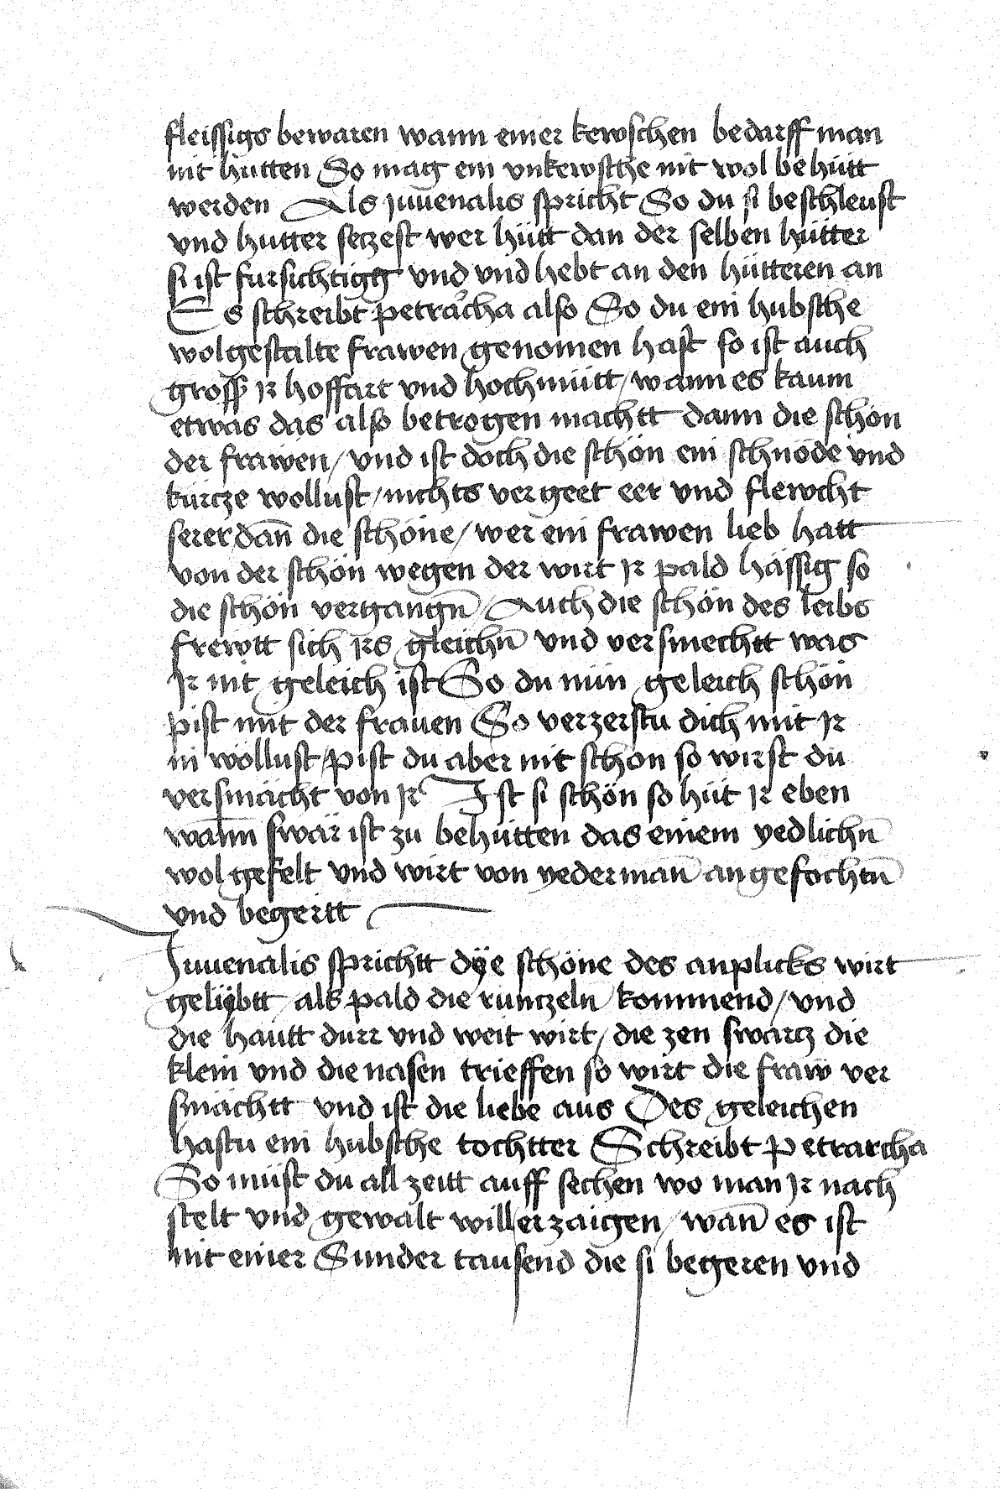 fleissigs bewaren wann einer kewschen bedarff man
nit hutten So mag ein vnkewsche nit wol behütt
werden Als Juuenalis spricht So du si beschleust
vnd hutter setzest wer hütt dan der selben hütter
si ist fursichtigg vnd vnd hebt an den hütteren an
Es schreibt petrarcha also So du ein hubsche
wolgestalte frawen genomen hast so ist auch
gross ir hoffart vnd hochmütt / wann es kaum
etwas das also betrogen machtt dann die schön
der frawen / vnd ist doch die schön ein schnöde vnd
kürcze wollust / nichts vergeet eer vnd flewcht
serer dan̄ die schöne / wer ein frawen lieb hatt
von der schön wegen der wirt ir pald hässig so
die schön vergangn̄ / Auch die schön des leibs
frewtt sich irs gleichn̄ vnd versmechtt was
Ir nit geleich ist So du nün geleich schön
pist mit der frauen So verzerstu dich mit ir
in wollust / pist du aber nit schon so wirst du
versmächt von ir Ist si schön so hüt ir eben
wann swär ist zu behütten das einem yedlichn̄
wol gefelt vnd wirt von yederman̄ angefochtn̄
vnd begertt
Juuenalis sprichtt dÿe schöne des anplicks wirt
gelÿbtt als pald die runtzeln kommend / vnd
die hautt durr vnd weit wirt / die zen swarcz die
klein vnd die nasen trieffen so wirt die fraw ver
smächtt vnd ist die liebe aus Des geleichen
hastu ein hubsche tochtter Schreibt petrarcha
So müst du all zeitt auff sechen wo man ir nach
stelt vnd gewalt will erzaigen / wan̄ es ist
nit einer Sunder tausend die si begeren vnd